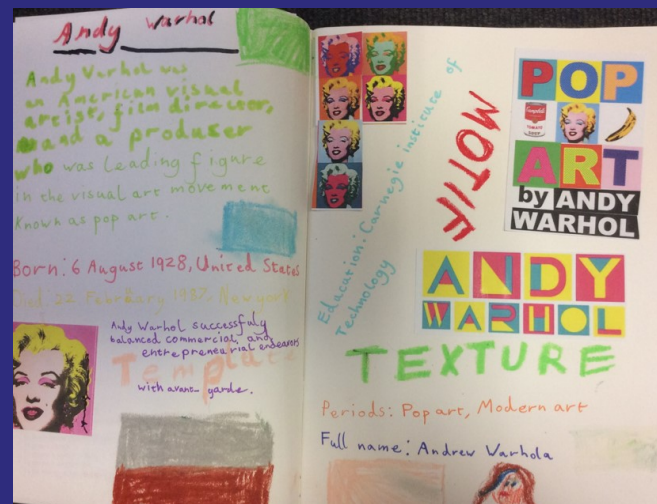 Andy Warhol
Andy Varhol was
an American visual
artist, film director,
and a produser
who was leading figure
in the visual art movement
Known as pop art.
Born: 6 August 1928, United States
Died: 22 February 1987, Newyork
Andy Warhol successfuly
balanced commercial, and
entreprenearial endeavors
Template
with avant-garde.
Edacation: Carnegie institute of
Technology
MOTIF
POP
Campbell's
TOMATO
SOUP
ART
by ANDY
WARHOL
ANDY
WARHOL
TEXTURE
Periods: Pop art, Modern art
Full name: Andrew Warhola